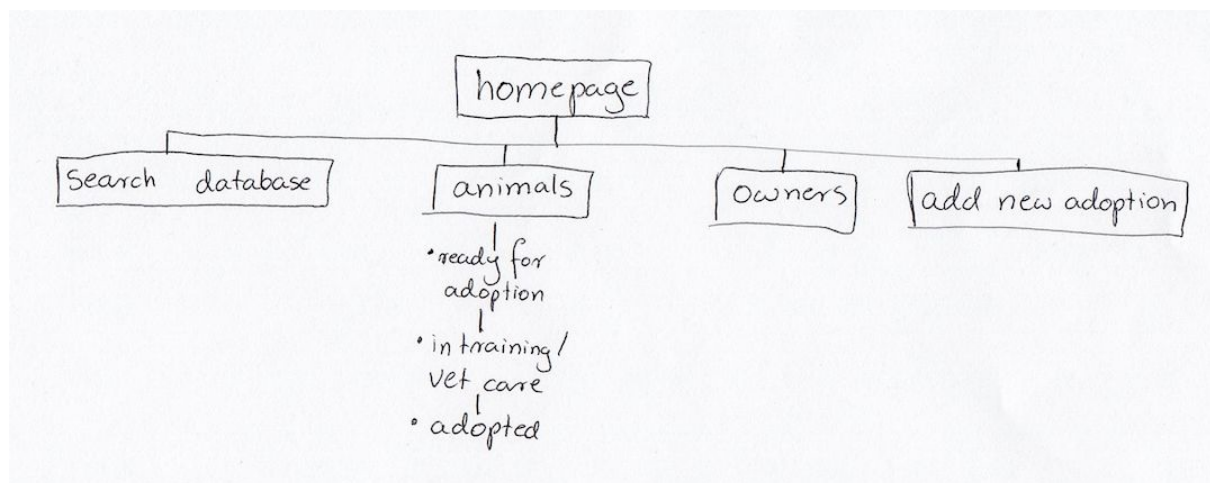 homepage
Search database
animals
owners
add new adoption
• ready for
adoption
• in training/
vet care
• adopted